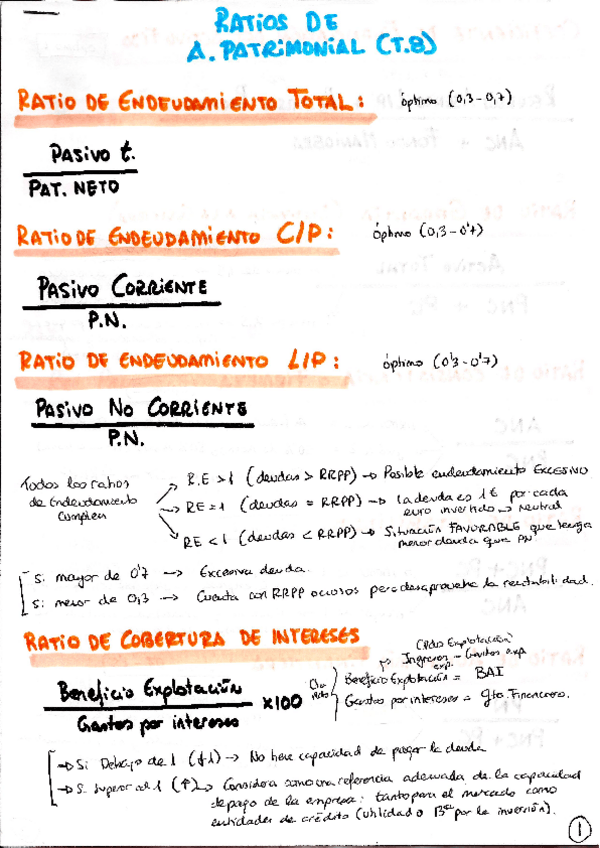 RATIOS DE
A. PATRIMONIAL (T.8)
RATIO DE ENDEUDAMIENTO TOTAL: óptimo (0,3-0,7)
PASIVO t.
PAT. NETO
RATIO DE ENDEUDAMIENTO C/P: óptimo (0,3-0'7)
PASIVO CORRIENTE
P.N.
RATIO DE ENDEUDAMIENTO L/P: óptimo (0'3-0'7)
PASIVO NO CORRIENTE
P.N.
Todos los ratios
de Endeudamiento
Cumplen
R.E >1 (deudas > RRPP) → Posible endeudamiento EXCESIVO
RE=1 (deudas = RRPP) → la deuda es 1€ por cada
euro invertido → neutral
RE<1 (deudas < RRPP) → Situación FAVORABLE que tenga
menor deuda que PN
Si mayor de 0'7 → Excesiva deuda.
Si menor de 0,3 → Cuenta con RRPP ociosos pero desaprovecha la rentabilidad.
RATIO DE COBERTURA DE INTERESES
Beneficio Explotación
Gastos por intereses
x100
Ingresos exp. - Gastos exp
Beneficio Explotación = BAI
Gastos por intereses = gto. Financieros.
→ Si Debajo de 1 (↓1) → No tiene capacidad de pagar la deuda
→ Si superior al 1 (↑) → Considera como una referencia adecuada de la capacidad
de pago de la empresa: tanto para el mercado como
entidades de crédito (utilidad o por la inversión).
1